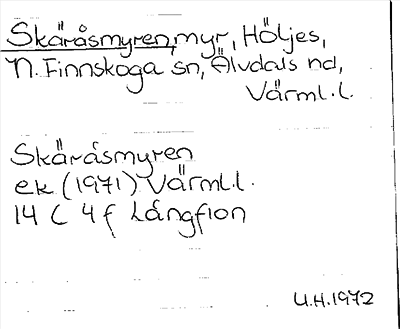 Skäråsmyren, myr, Höljes,
N. Finnskoga sn, Älvdals hd,
Värml. l.
Skäråsmyren
ek (1971) Värml.l.
14 C 4 f Långfion
U.H. 1972